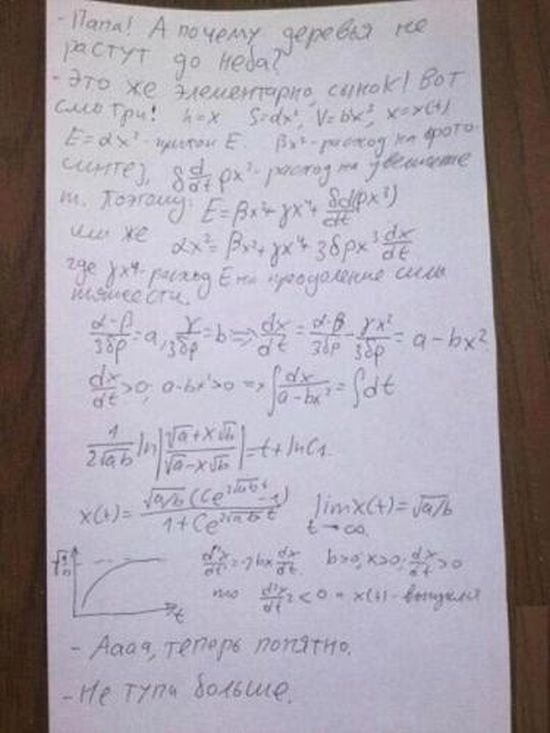 - Папа! А почему деревья не
растут до неба?
- Это же элементарно, сынок! Вот
смотри! h=x S=dx², V=bx³, x=x(t)
E=αx² - приток E. βx² - расход на фото-
синтез, δ d/dt ρx³ - расход на увеличение
m. Поэтому: E=βx²+γx⁴+δd(ρx³)/dt
или же αx²=βx²+γx⁴+3δρx² dx/dt
где γx⁴ - расход E на преодоление силы
тяжести.
(α-β)/3δρ=a, γ/3δρ=b => dx/dt = (α-β)/3δρ - γx²/3δρ = a-bx²
dx/dt>0; a-bx²>0 => ∫dx/(a-bx²) = ∫dt
1/(2√ab) ln|(√a+x√b)/(√a-x√b)| = t+lnC1.
x(t) = √a/b (Ce^(2√ab t) -1)/(1+Ce^(2√ab t)) lim x(t) = √a/b
t→∞
√a/b d²x/dt² = -2bx dx/dt. b>0; x>0; dx/dt>0
t то d²x/dt² <0 = x(t) - выпукла
- Аааа, теперь понятно.
- Не тупи больше.